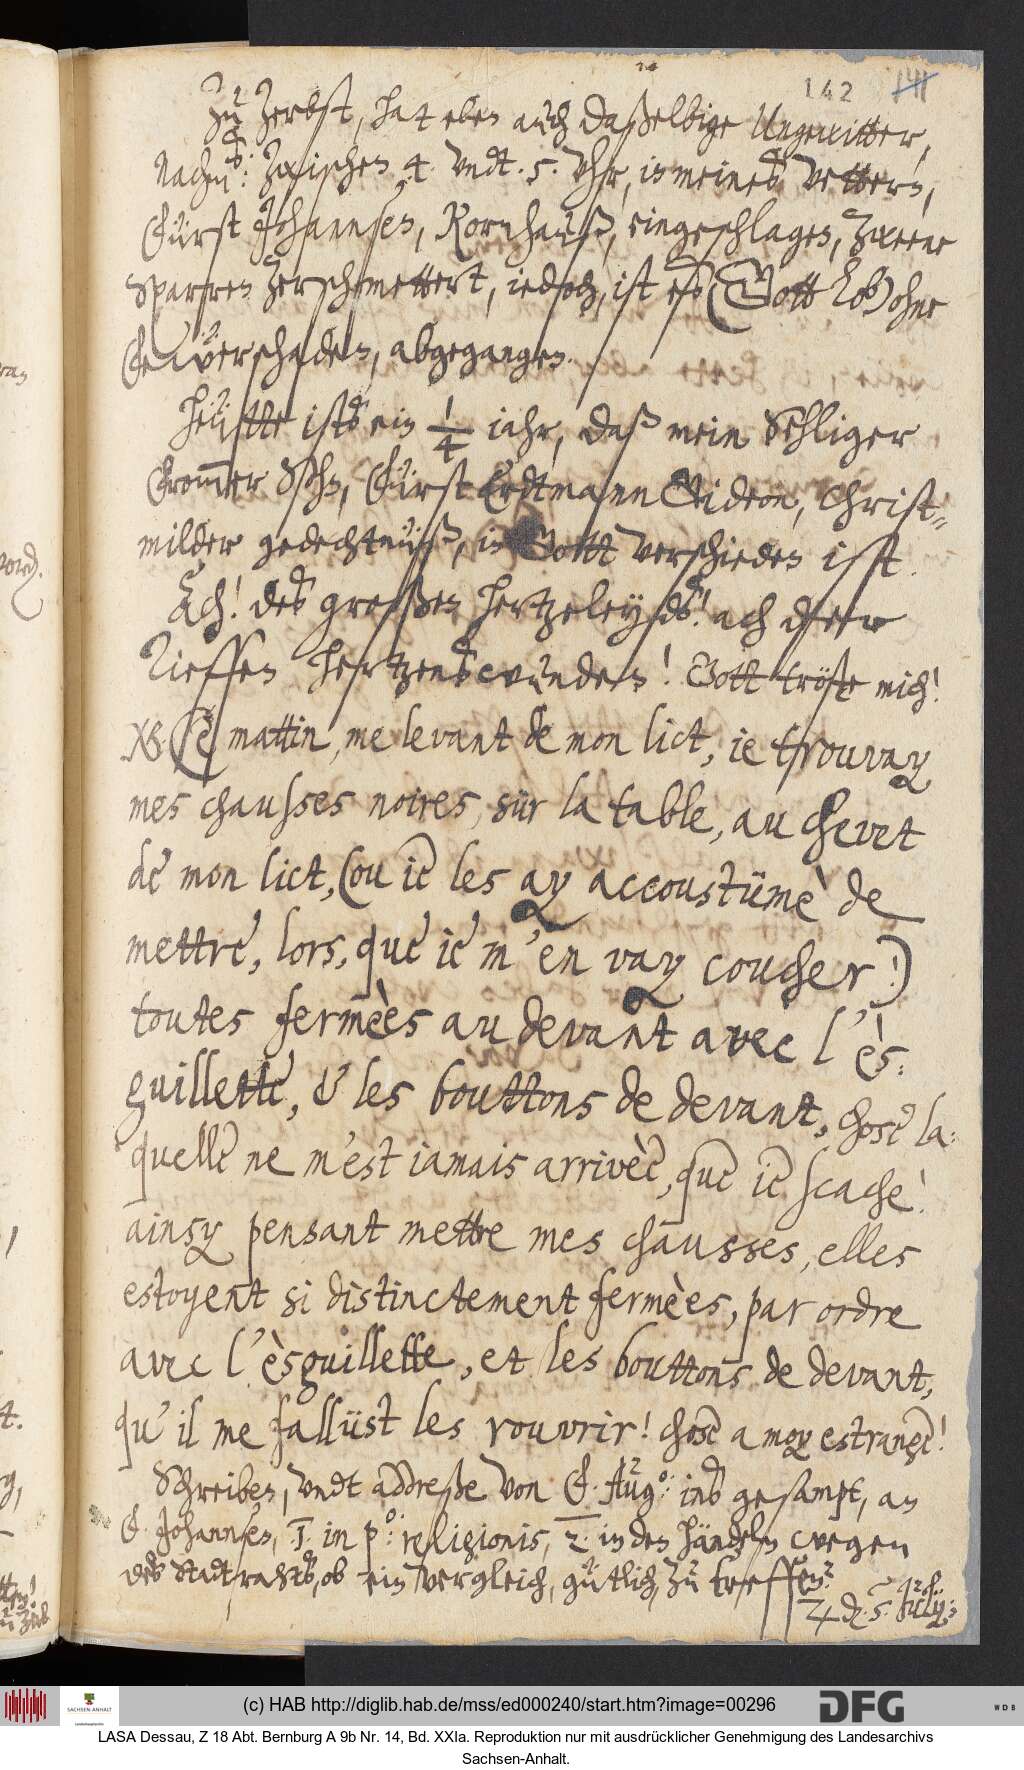 142 141
Zu Zerbst, hat eben auch daßelbige Ungewitter,
Nachm: Zwischen 4. undt. 5. Uhr, in meines Vettern,
Fürst Johannsen, Kornhauß, eingeschlagen, Zweene
Sparren Zerschmettert, iedoch, ist es (Gott lob) ohne
Feüerschaden, abgegangen.
Heütte ists ein 1/4 iahr, daß mein Sehliger
Frommer Sohn, Fürst Erdtmann Gideon, Christ-
milder gedechtnüß, in Gott verschieden ist.
Ach! des großen hertzeleyds! ach der
Tieffen hertzenswunden! Gott tröste mich!
NB. Ce mattin, me levant de mon lict, ie trouvay
mes chausses noires, sür la table, au chevet
de mon lict, (ou ie les ay accoustümè de
mettre, lors, que ie m'en vay coucher!)
toutes fermèes au devant avec l'ès:
guillette, & les bouttons de devant, chose la:
quelle ne m'est iamais arrivèe, que ie scache!
ainsy pensant mettre mes chausses, elles
estoyent si distinctement fermèes, par ordre
avec l'èsguillette, et les bouttons de devant,
qu'il me fallüst les rouvrir! chose a moy estrange!
Schreiben, undt addreße von F. Augo: ins gesampt, an
F. Johannsen, 1. in po: religionis, 2. in den händeln wegen
des Stadtrahts, ob ein vergleich, gütlich, zu treffen?
♃ d. 5. Julij:
(c) HAB http://diglib.hab.de/mss/ed000240/start.htm?image=00296
SACHSEN-ANHALT
DFG
WDB
LASA Dessau, Z 18 Abt. Bernburg A 9b Nr. 14, Bd. XXIa. Reproduktion nur mit ausdrücklicher Genehmigung des Landesarchivs
Sachsen-Anhalt.